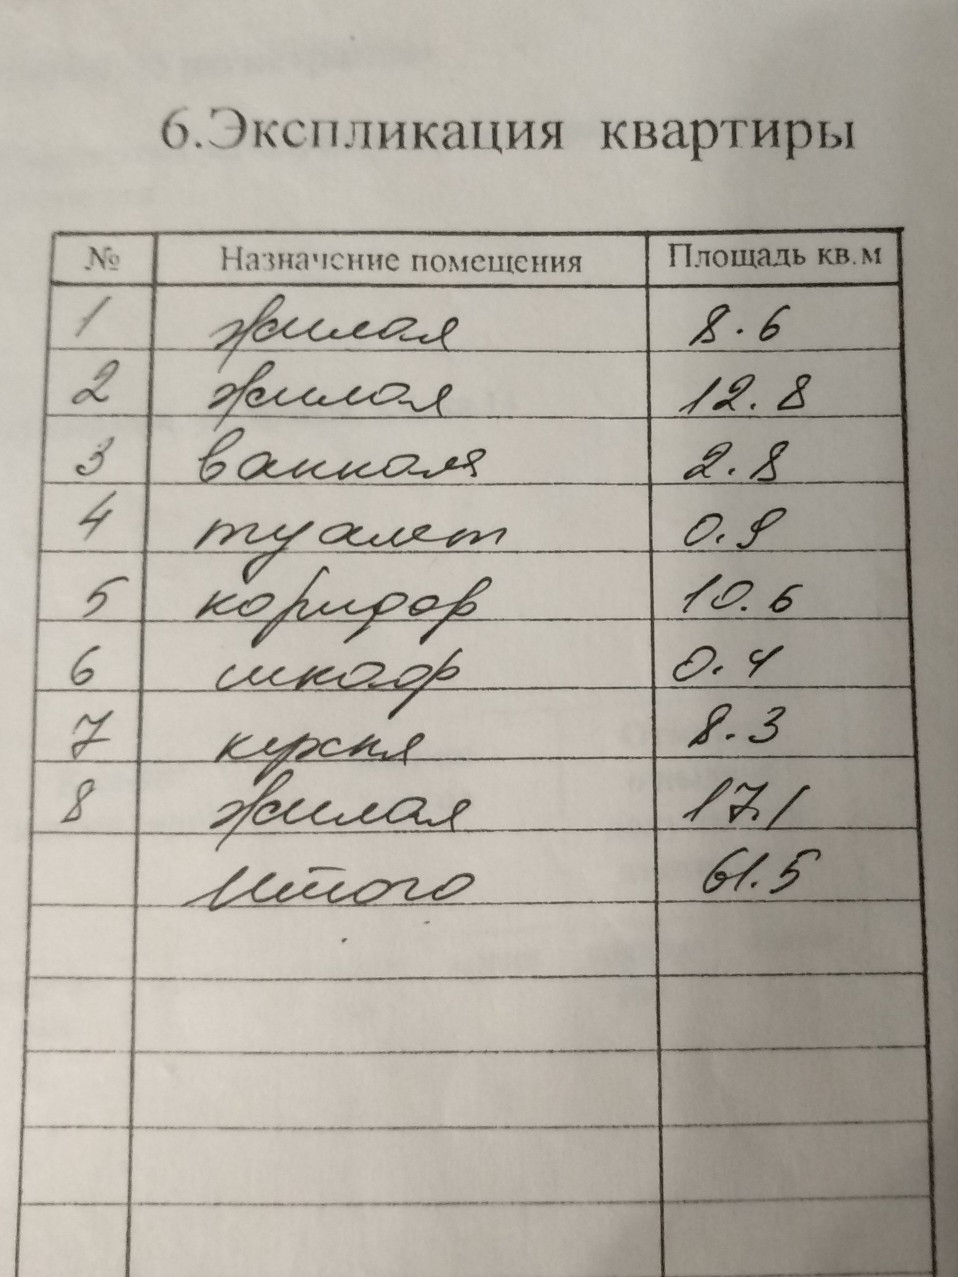 6.Экспликация квартиры
№ Назначение помещения Площадь кв.м
1 жилая 8.6
2 жилая 12.8
3 ванная 2.8
4 туалет 0.9
5 коридор 10.6
6 шкаф 0.4
7 кухня 8.3
8 жилая 17.1
Итого 61.5